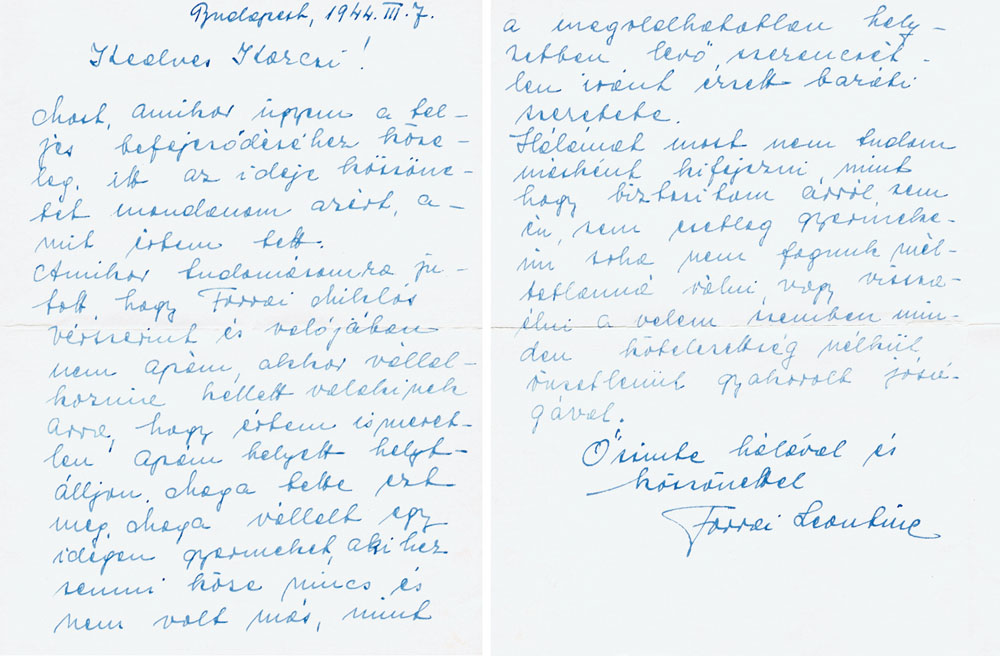 Budapest, 1944. III. 7.
Kedves Karcsi!
Most, amikor ügyem a tel-
jes befejeződéséhez köze-
leg, itt az ideje köszöne-
tet mondanom azért, a-
mit értem tett.
Amikor tudomásomra ju-
tott, hogy Forrai Miklós
vérszerint és valójában
nem apám, akkor vállal-
koznia kellett valakinek
arra, hogy értem ismeret-
len apám helyett helyt-
álljon. Maga tette ezt
meg. Maga vállalt egy
idegen gyermeket, akihez
semmi köze nincs és
nem volt más, mint
a megoldhatatlan hely-
zetben levő szerencsét-
len iránt érzett baráti
szeretete.
Hálámat most nem tudom
másként kifejezni, mint
hogy biztosítom arról, sem
én, sem esetleg gyermeke-
im soha nem fogunk mél-
tatlanná válni, vagy vissza-
élni a velem szemben min-
den kötelezettség nélkül,
önzetlenül gyakorolt jósá-
gával.
Őszinte hálával és
köszönettel
Forrai Leontine